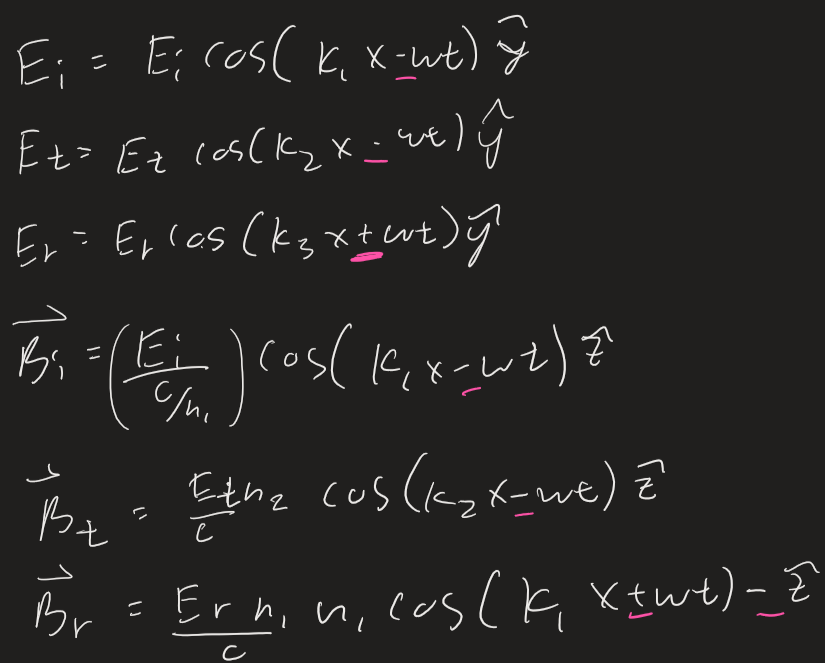 E_i = E_i cos(k_1 x - wt) ŷ
E_t = E_t cos(k_2 x - wt) ŷ
E_r = E_r cos(k_3 x + wt) ŷ
\vec{B}_i = (E_i / (c/n_1)) cos(k_1 x - wt) ẑ
\vec{B}_t = (E_t n_2 / c) cos(k_2 x - wt) ẑ
\vec{B}_r = (E_r n_1 / c) n_1 cos(k_1 x + wt) - ẑ